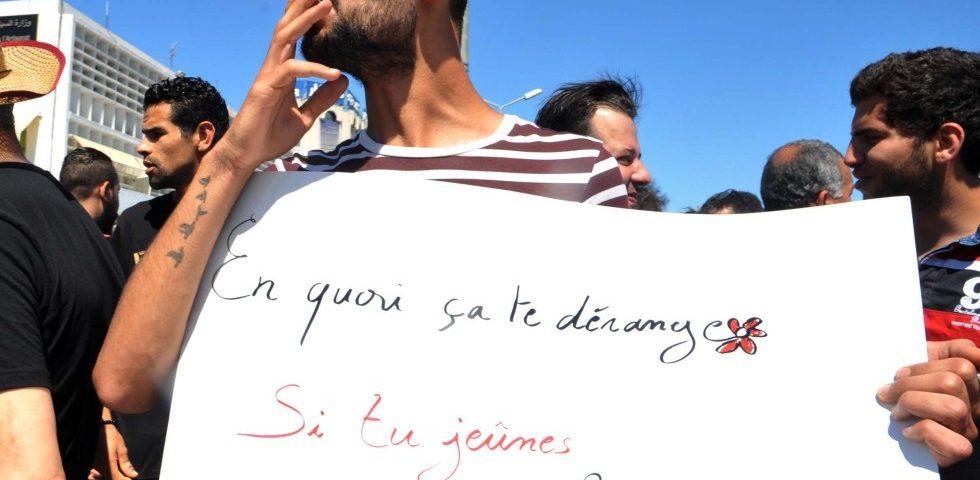 وزارة
En quoi ça te dérange
Si tu jeûnes
9